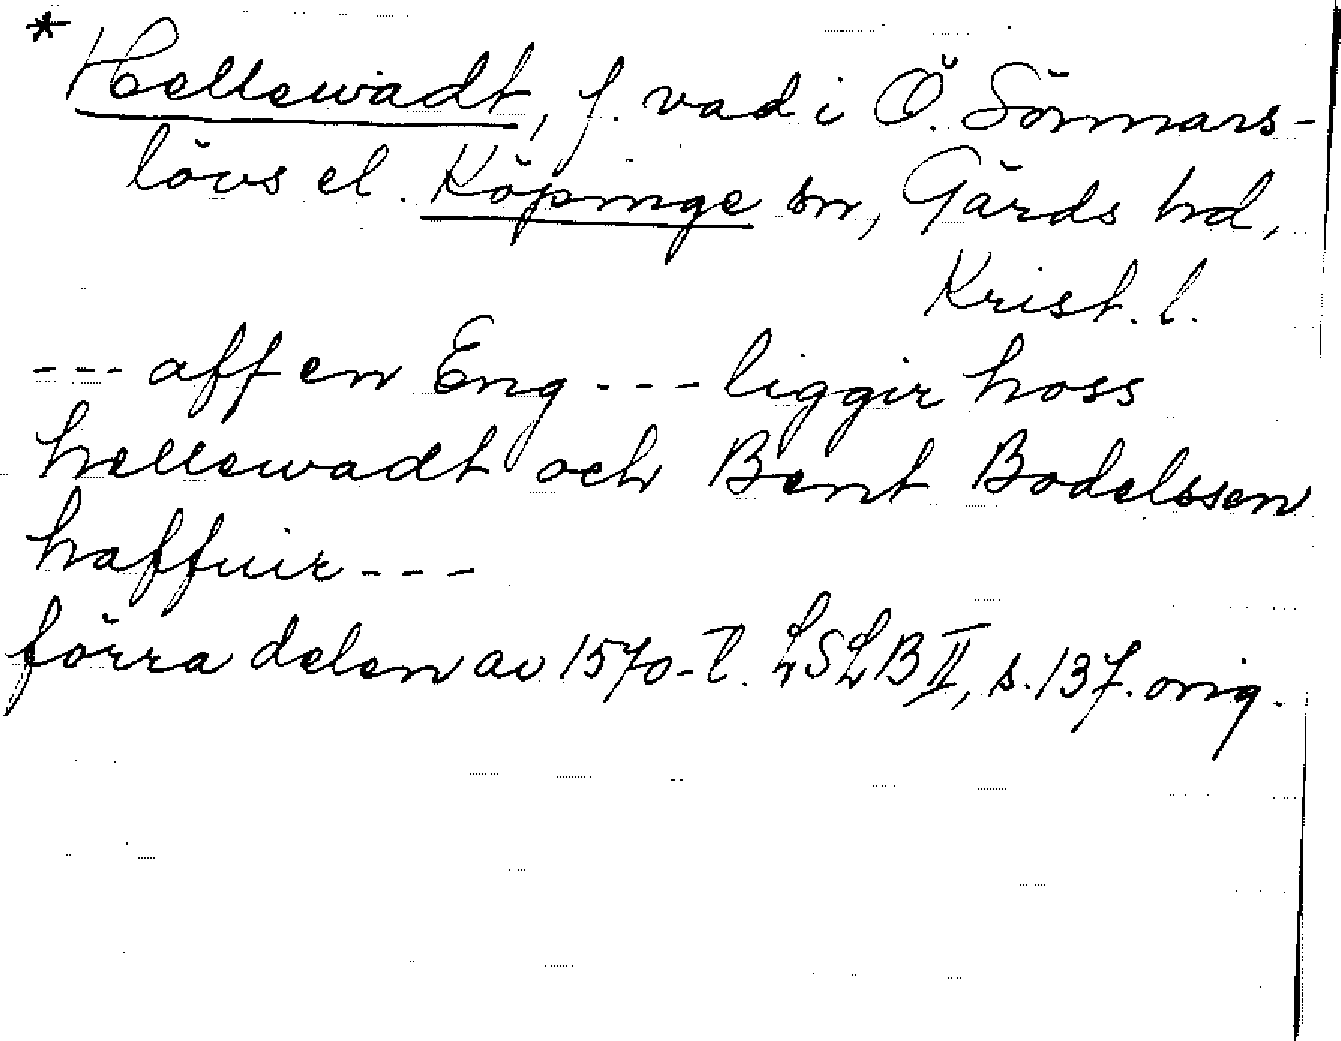 * Hellewadt, f. vad i Ö. Sönnars-
lövs el. Köpinge sn, Gärds hd,
Krist. l.
--- aff en Eng --- liggir hoss
hellewadt och Bent Bodelssen
haffuir ---
förra delen av 1570-t. LSLB II, s. 137. orig.